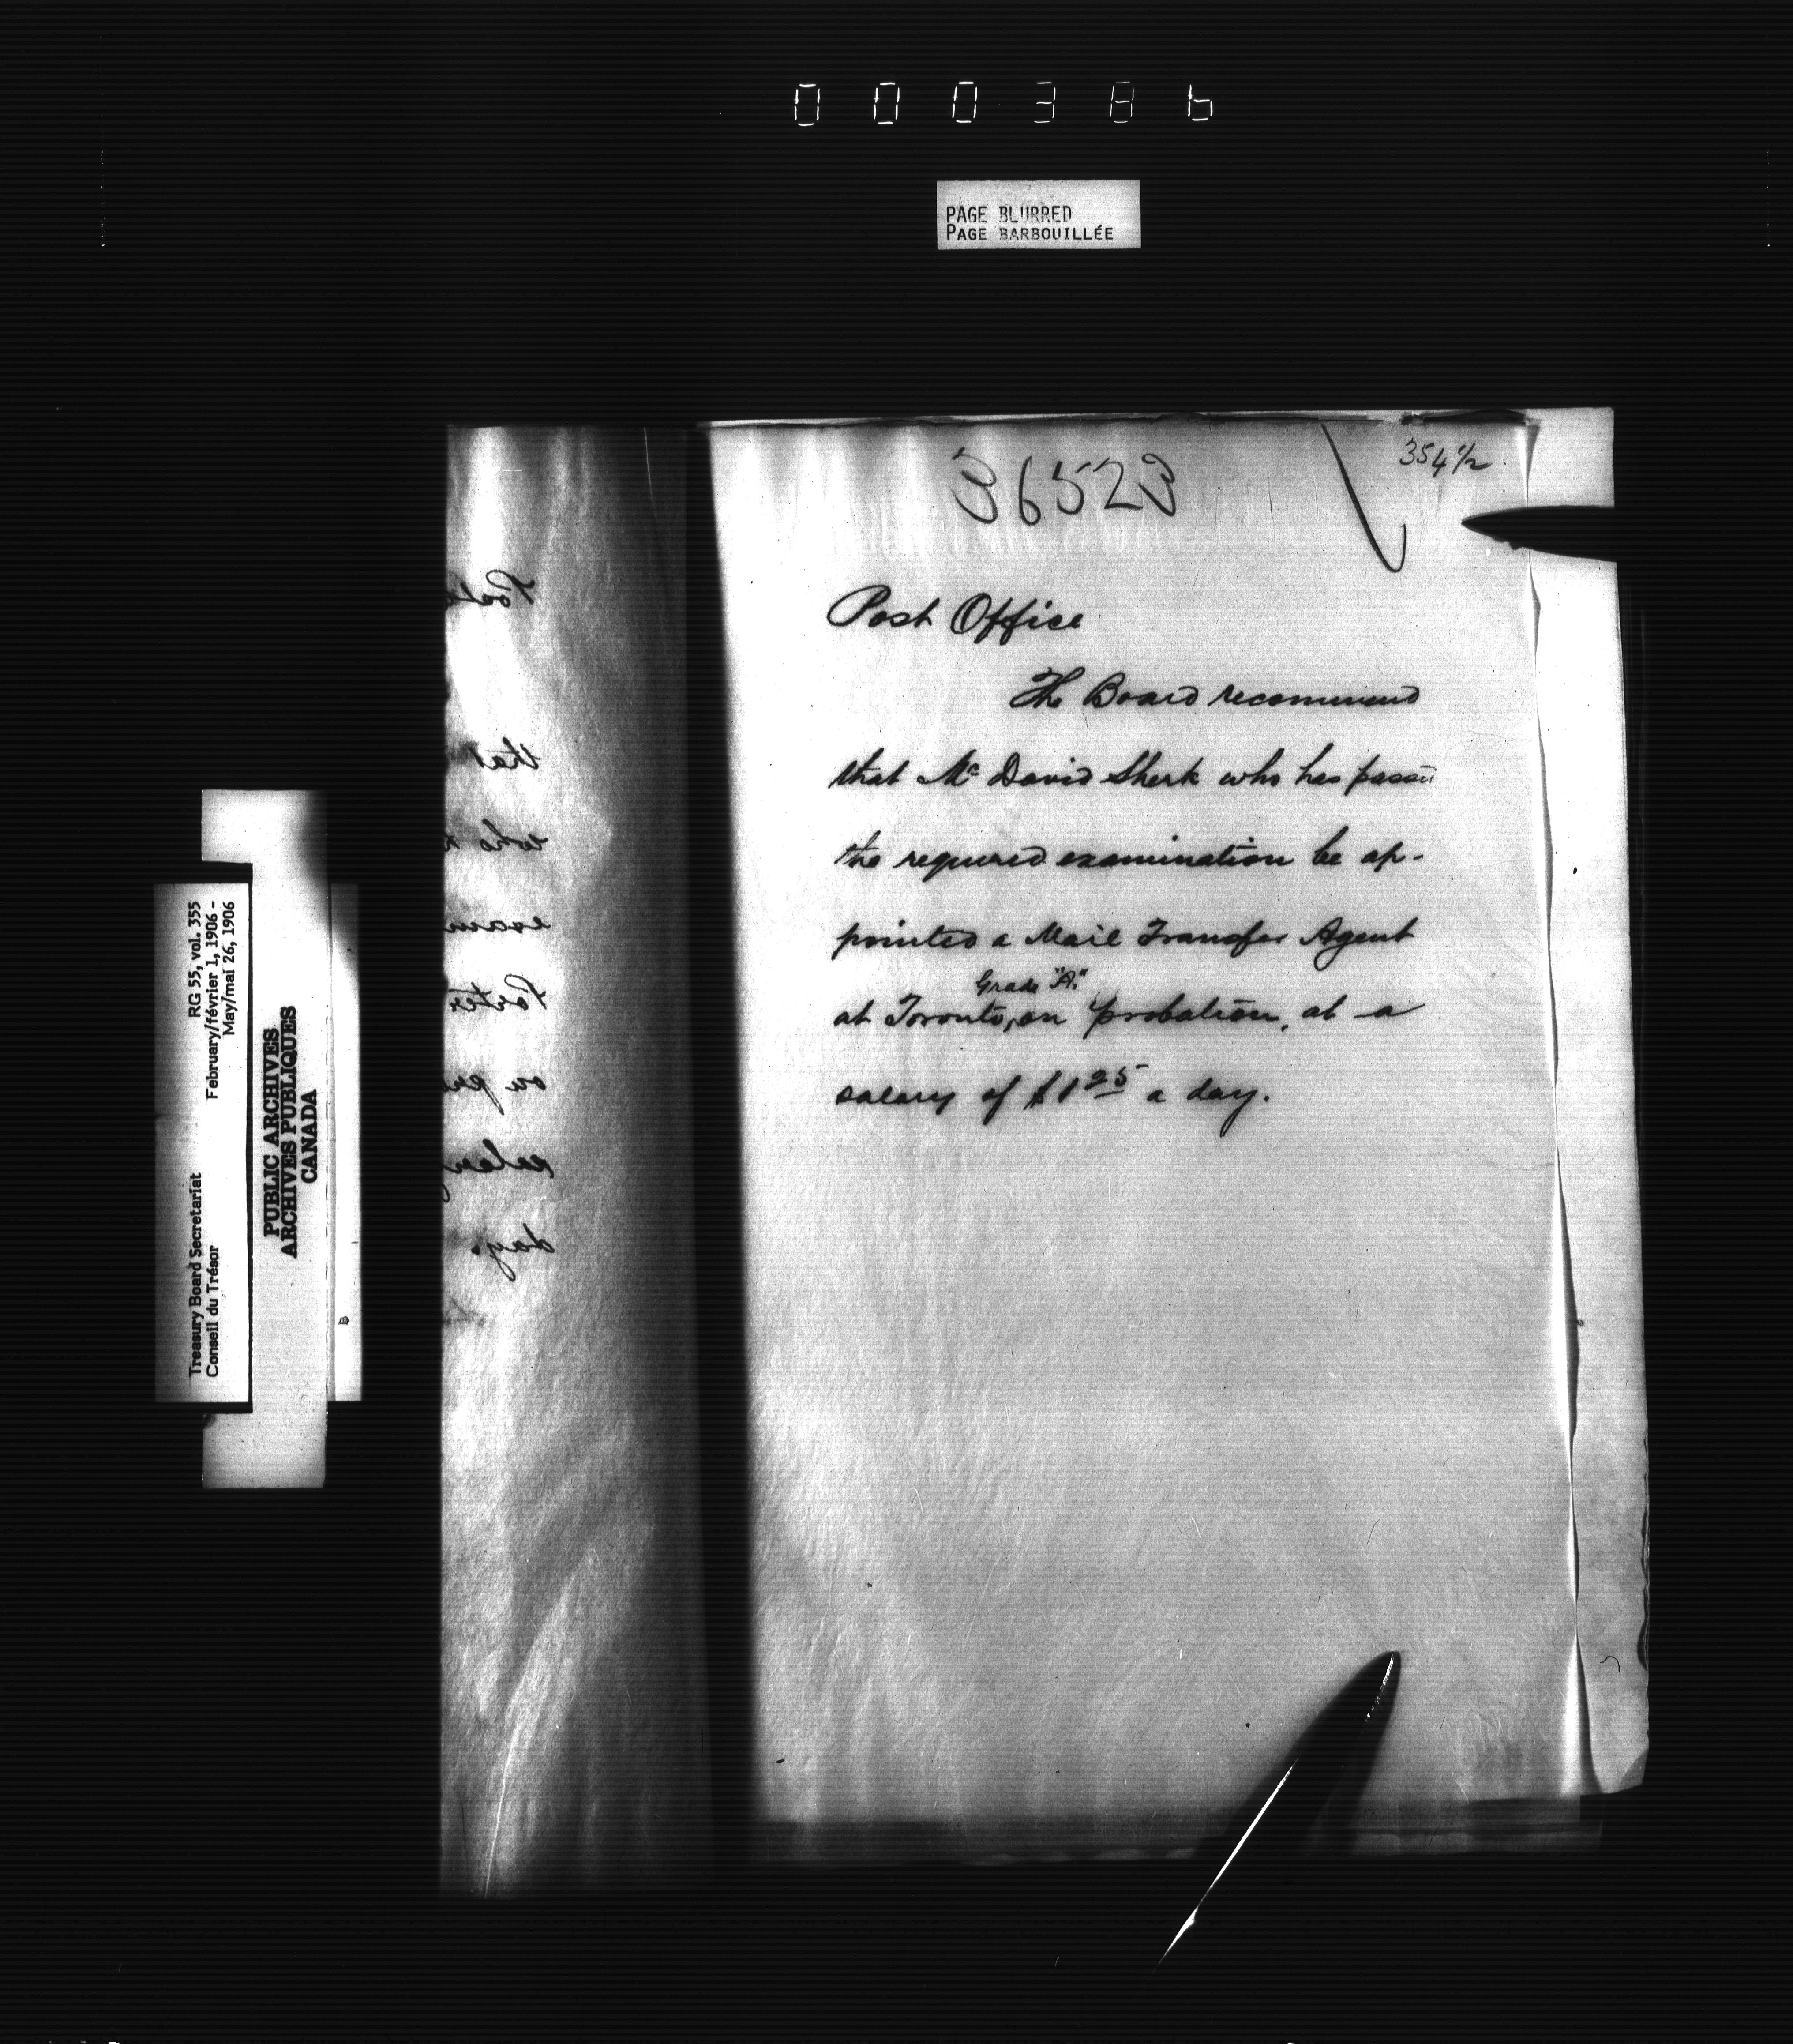 000386
PAGE BLURRED
PAGE BARBOUILLÉE
36523
354 1/2
Post Office
The Board recommend
that Mr David Sherk who has passed
the required examination be ap-
pointed a Mail Transfer Agent
Grade "A."
at Toronto, on probation, at a
salary of $1 25 a day.
Post
that
who
exam
Porter
on
salary
day.
Treasury Board Secretariat
Conseil du Trésor
RG 55, vol. 355
February/février 1, 1906 -
May/mai 26, 1906
PUBLIC ARCHIVES
ARCHIVES PUBLIQUES
CANADA